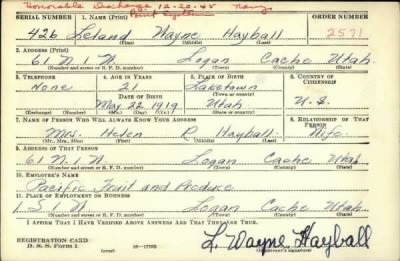 Honorable Discharge 12-20-45 Navy
Point System
SERIAL NUMBER 1. NAME (Print) ORDER NUMBER
426 Leland Wayne Hayball 2571
(First) (Middle) (Last)
2. ADDRESS (Print)
61 N 1 W Logan Cache Utah
(Number and street or R. F. D. number) (Town) (County) (State)
3. TELEPHONE 4. AGE IN YEARS 5. PLACE OF BIRTH 6. COUNTRY OF CITIZENSHIP
None 21 Laketown
DATE OF BIRTH (Town or county)
May 22 1919 Utah U. S.
(Exchange) (Number) (Mo.) (Day) (Yr.) (State or country)
7. NAME OF PERSON WHO WILL ALWAYS KNOW YOUR ADDRESS 8. RELATIONSHIP OF THAT PERSON
Mrs. Helen R. Hayball Wife
(Mr., Mrs., Miss) (First) (Middle) (Last)
9. ADDRESS OF THAT PERSON
61 N 1 W Logan Cache Utah
(Number and street or R. F. D. number) (Town) (County) (State)
10. EMPLOYER'S NAME
Pacific Fruit and Produce
11. PLACE OF EMPLOYMENT OR BUSINESS
1 S 1 W Logan Cache Utah
(Number and street or R. F. D. number) (Town) (County) (State)
I AFFIRM THAT I HAVE VERIFIED ABOVE ANSWERS AND THAT THEY ARE TRUE.
REGISTRATION CARD
D. S. S. Form 1 L. Wayne Hayball
(over) (Registrant's signature)